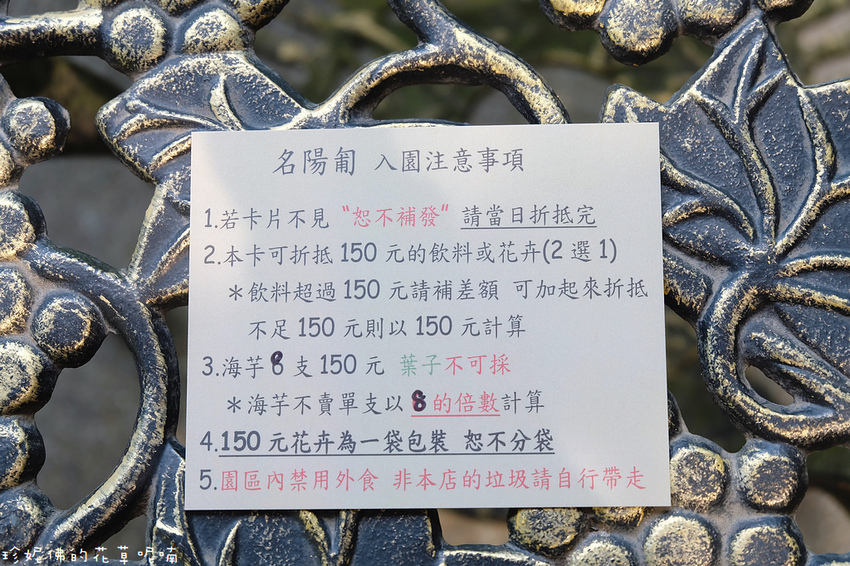 名陽匍 入園注意事項
1.若卡片不見 “恕不補發” 請當日折抵完
2.本卡可折抵 150 元的飲料或花卉(2 選 1)
＊飲料超過 150 元請補差額 可加起來折抵
不足 150 元則以 150 元計算
3.海芋 8 支 150 元 葉子不可採
＊海芋不賣單支以 8 的倍數計算
4.150 元花卉為一袋包裝 恕不分袋
5.園區內禁用外食 非本店的垃圾請自行帶走
珍妮佛的花草呢喃